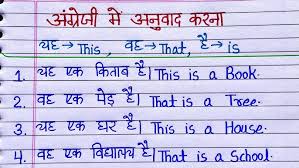 अंग्रेजी में अनुवाद करना
यह → This , वह → That, है → is
1. यह एक किताब है। This is a Book.
2. वह एक पेड़ है। That is a Tree.
3. यह एक घर है। This is a House.
4. वह एक विद्यालय है। That is a School.